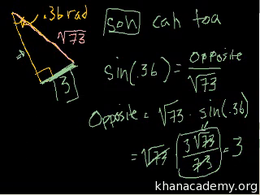 .36 rad
soh cah toa
√73
8
3
sin(.36) = opposite / √73
Opposite = √73 · sin(.36)
= √73 (3√73 / 73) = 3
khanacademy.org